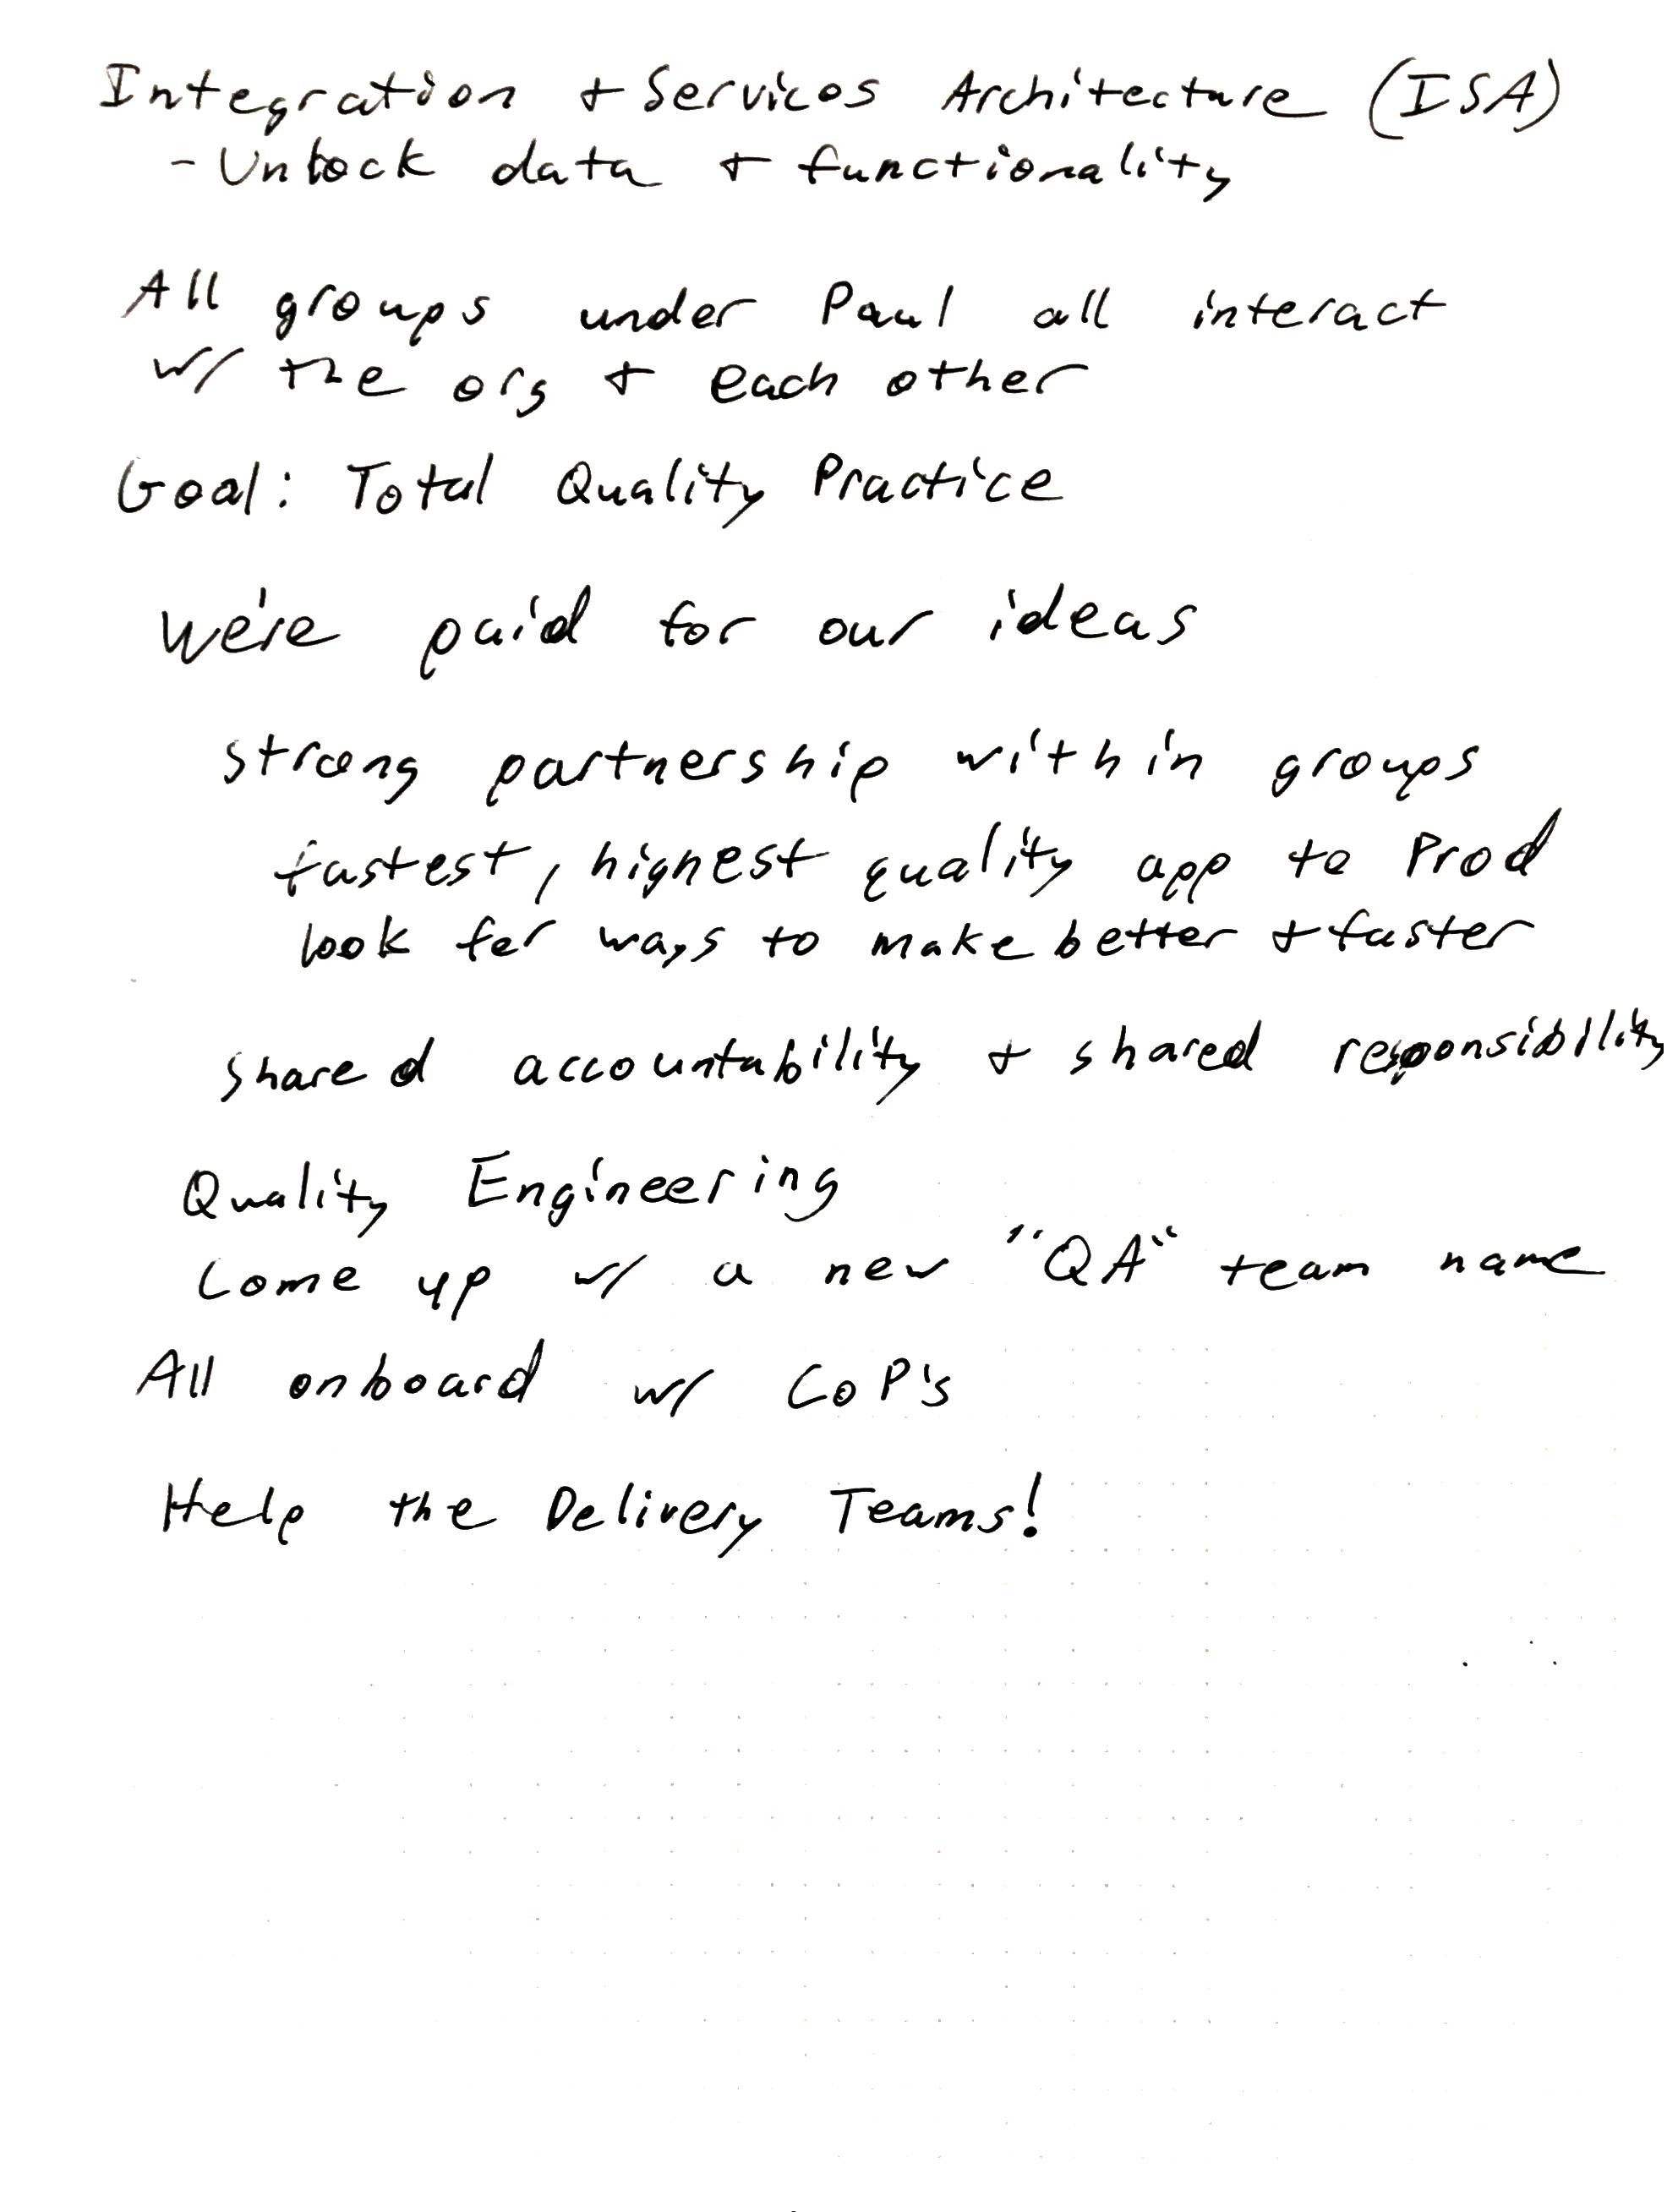 Integration + Services Architecture (ISA)
- Unlock data + functionality
All groups under Paul all interact
w/ the org + each other
Goal: Total Quality Practice
We're paid for our ideas
strong partnership within groups
fastest, highest quality app to Prod
look for ways to make better + faster
shared accountability + shared responsibility
Quality Engineering
Come up w/ a new "QA" team name
All onboard w/ CoP's
Help the Delivery Teams!